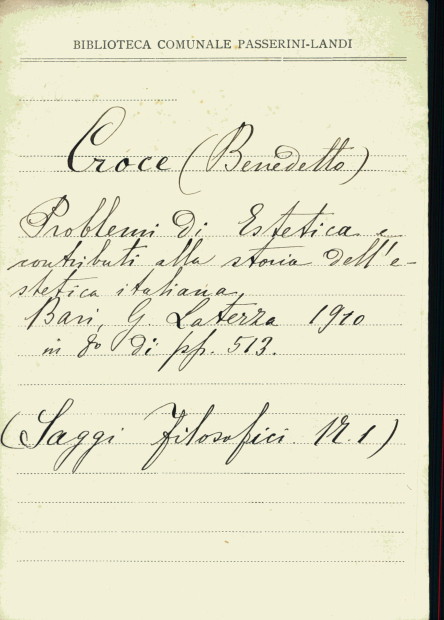 BIBLIOTECA COMUNALE PASSERINI-LANDI
Croce (Benedetto)
Problemi di Estetica e
contributi alla storia dell'e-
stetica italiana,
Bari, G Laterza 1910
in 8º di pp. 513.
(Saggi filosofici. N. 1)